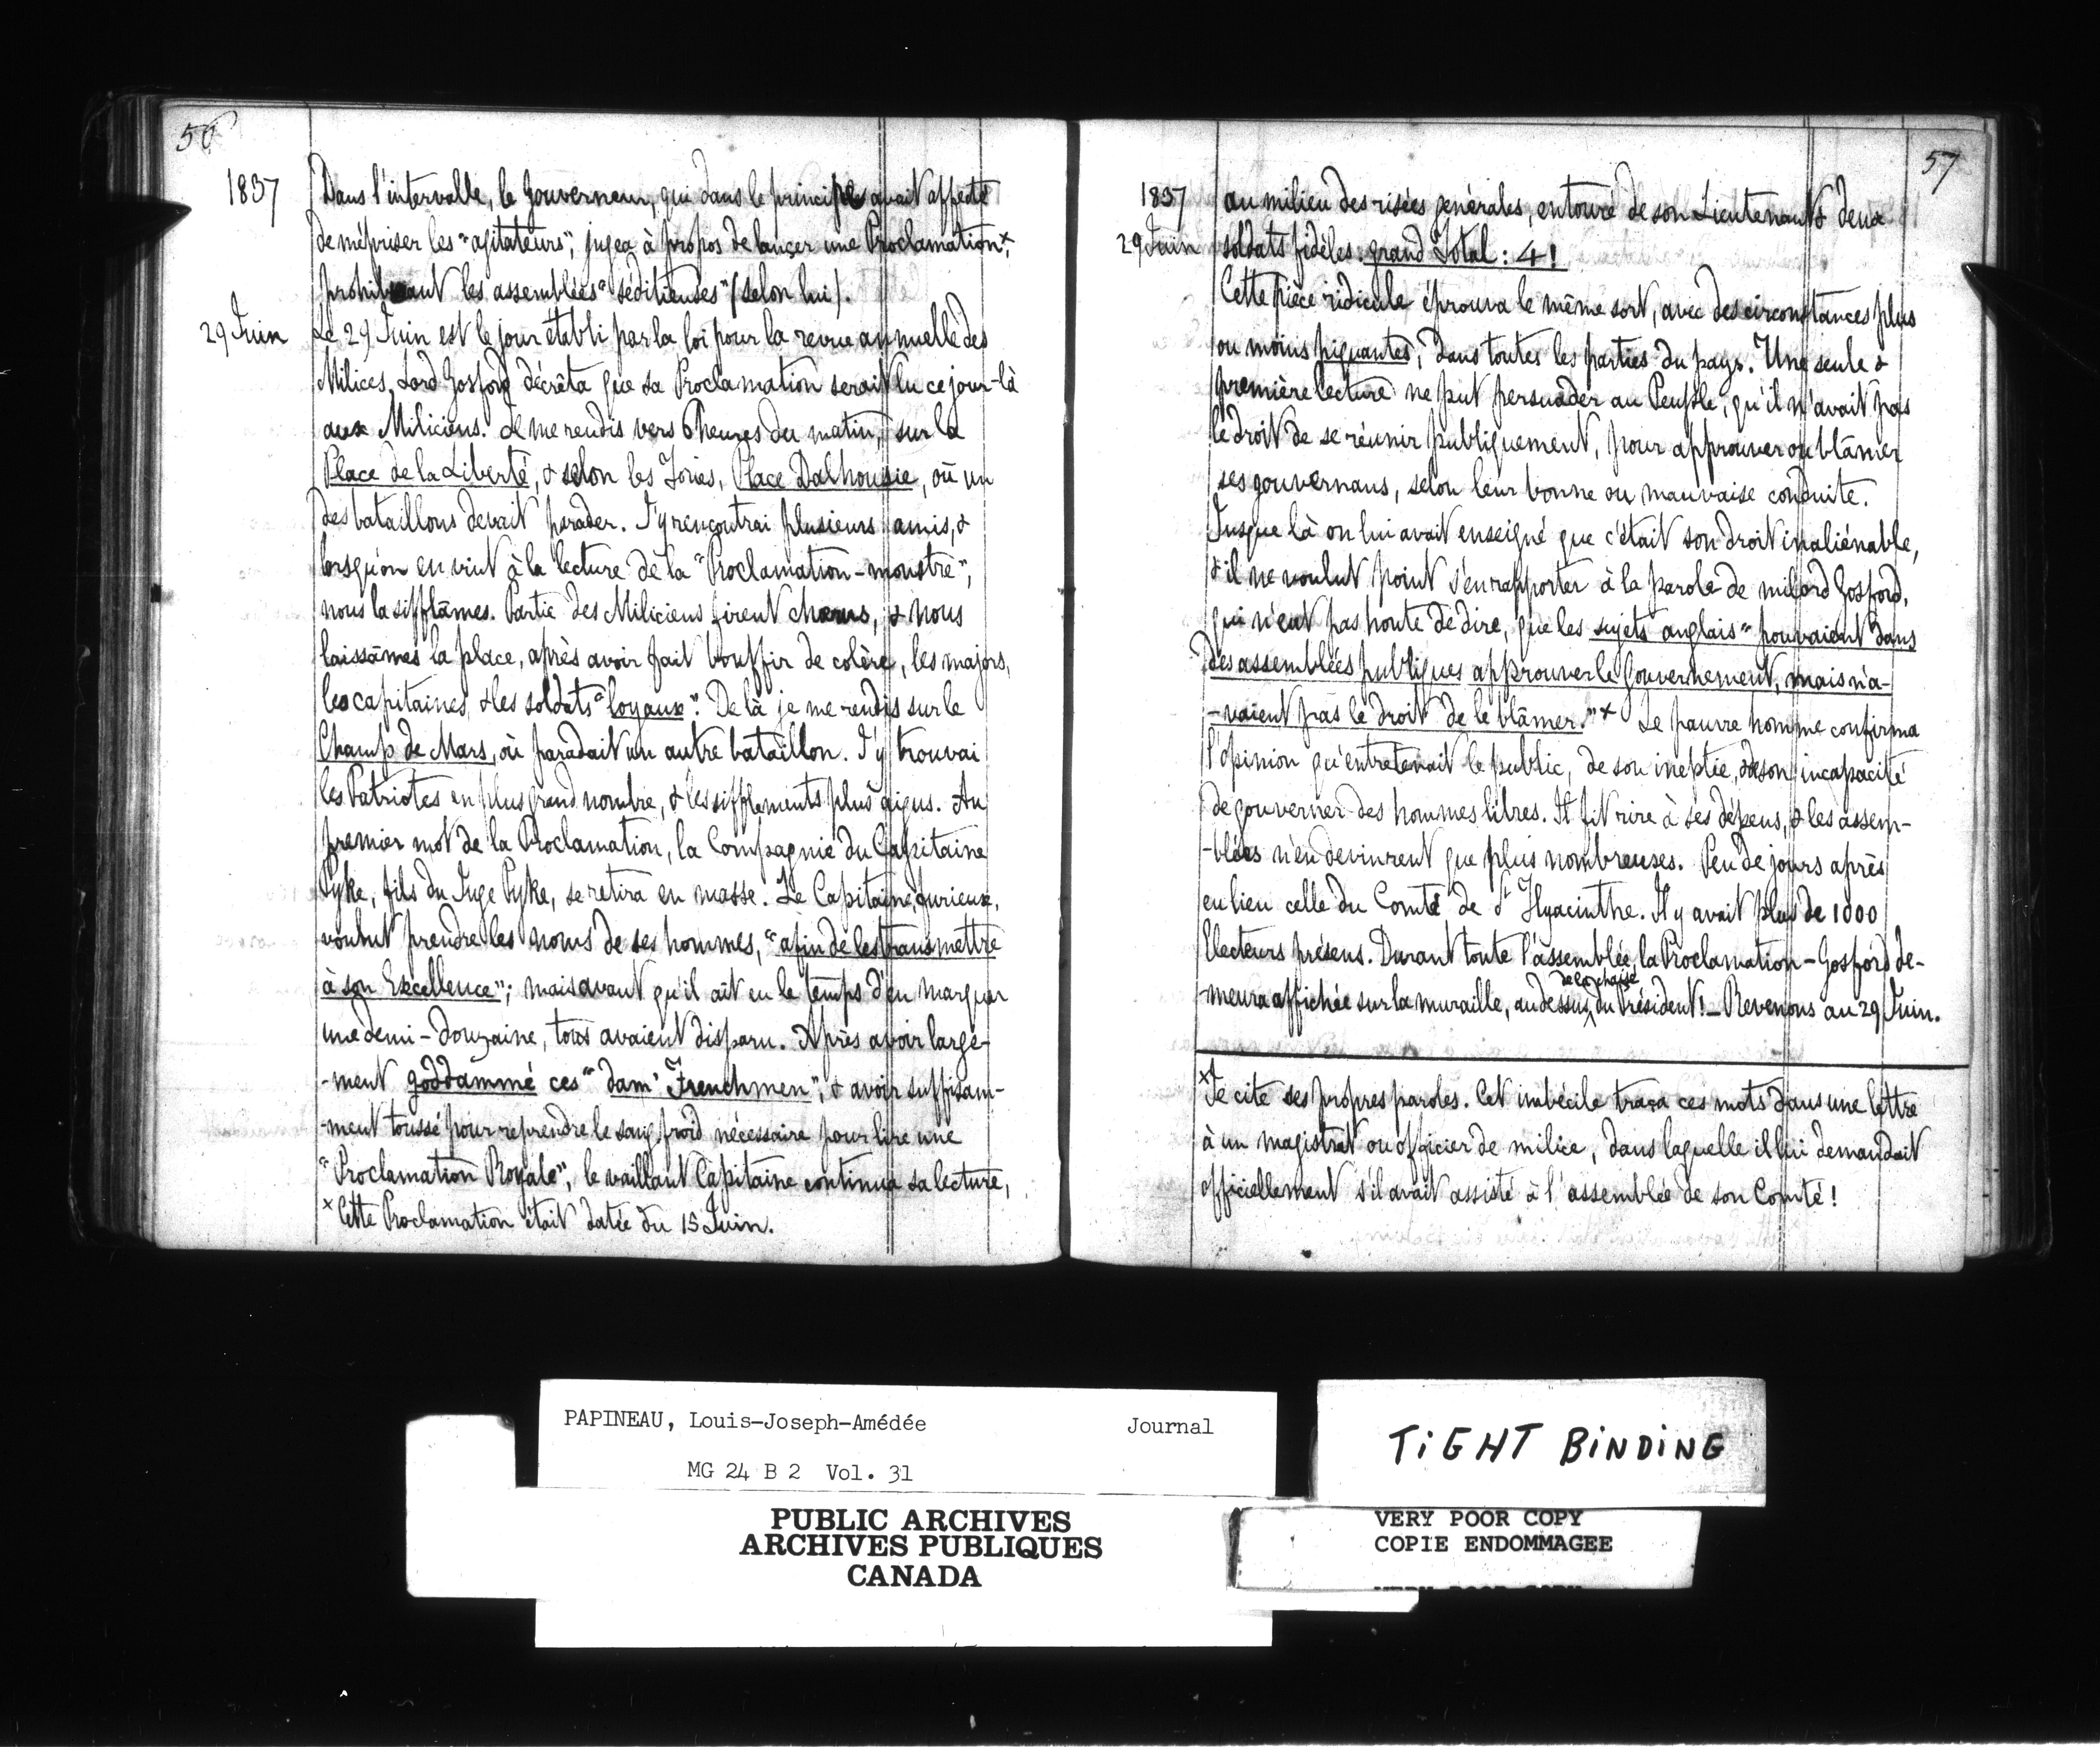 56
1837
Dans l'intervalle, le Gouverneur, qui dans le principe avait affecté
de mépriser les "agitateurs", jugea à propos de lançer une Proclamation x
prohibant les assemblées "séditieuses" (selon lui).
29 Juin
Le 29 Juin est le jour établi par la loi pour la revue annuelle des
Milices. Lord Gosford décrêta que sa Proclamation serait lu ce jour-là
aux Miliciens. Je me rendis vers 6 heures du matin, sur la
Place de la Liberté, & selon les Tories, Place Dalhousie, où un
des bataillons devait parader. J'y rencontrai plusieurs amis, &
lorsqu'on en vint à la lecture de la "Proclamation-monstre",
nous la sifflâmes. Partie des Miliciens firent chorus, & nous
laissâmes la place, après avoir fait bouffir de colère, les majors,
les capitaines, & les soldats "loyaux". De là je me rendis sur le
Champ de Mars, où paradait un autre bataillon. J'y trouvai
les Patriotes en plus grand nombre, & les sifflements plus aigus. Au
premier mot de la Proclamation, la Compagnie du Capitaine
Pyke, fils du Juge Pyke, se retira en masse. Le Capitaine, furieux,
voulut prendre les noms de ses hommes, "afin de les transmettre
à son Excellence"; mais avant qu'il ait eu le temps d'en marquer
une demi-douzaine, tous avaient disparu. Après avoir large-
-ment goddammé ces "dam' Frenchmen", & avoir suffisam-
-ment toussé pour reprendre le sang froid nécessaire pour lire une
"Proclamation Royale", le vaillant Capitaine continua sa lecture,
x Cette Proclamation était datée du 15 Juin.
57
1837
29 Juin
au milieu des risées générales, entouré de son Lieutenant & deux
soldats fidèles: grand Total: 4!
Cette pièce ridicule éprouva le même sort, avec des circonstances plus
ou moins piquantes, dans toutes les parties du pays. Une seule &
première lecture ne put persuader au Peuple, qu'il n'avait pas
le droit de se réunir publiquement, pour approuver ou blâmer
ses gouvernans, selon leur bonne ou mauvaise conduite.
Jusque là on lui avait enseigné que c'était son droit inaliénable,
& il ne voulut point s'en rapporter à la parole de milord Gosford,
qui n'eut pas honte de dire, que les sujets anglais "pouvaient dans
des assemblées publiques approuver le Gouvernement, mais n'a-
-vaient pas le droit de le blâmer." x Le pauvre homme confirma
l'opinion qu'entretenait le public, de son ineptie, & son incapacité
de gouverner des hommes libres. Il fit rire à ses dépens, & les assem-
-blées n'en devinrent que plus nombreuses. Peu de jours après
eu lieu celle du Comté de St Hyacinthe. Il y avait plus de 1000
Electeurs présens. Durant toute l'assemblée, la Proclamation-Gosford de-
-meura affichée sur la muraille, au dessus de la chaise du Président! - Revenons au 29 Juin.
x Je cite ses propres paroles. Cet imbécile traça ces mots dans une lettre
à un magistrat ou officier de milice, dans laquelle il lui demandait
officiellement s'il avait assisté à l'assemblée de son Comté!
PAPINEAU, Louis-Joseph-Amédée Journal
MG 24 B 2 Vol. 31
PUBLIC ARCHIVES
ARCHIVES PUBLIQUES
CANADA
TIGHT BINDING
VERY POOR COPY
COPIE ENDOMMAGEE
VERY POOR COPY